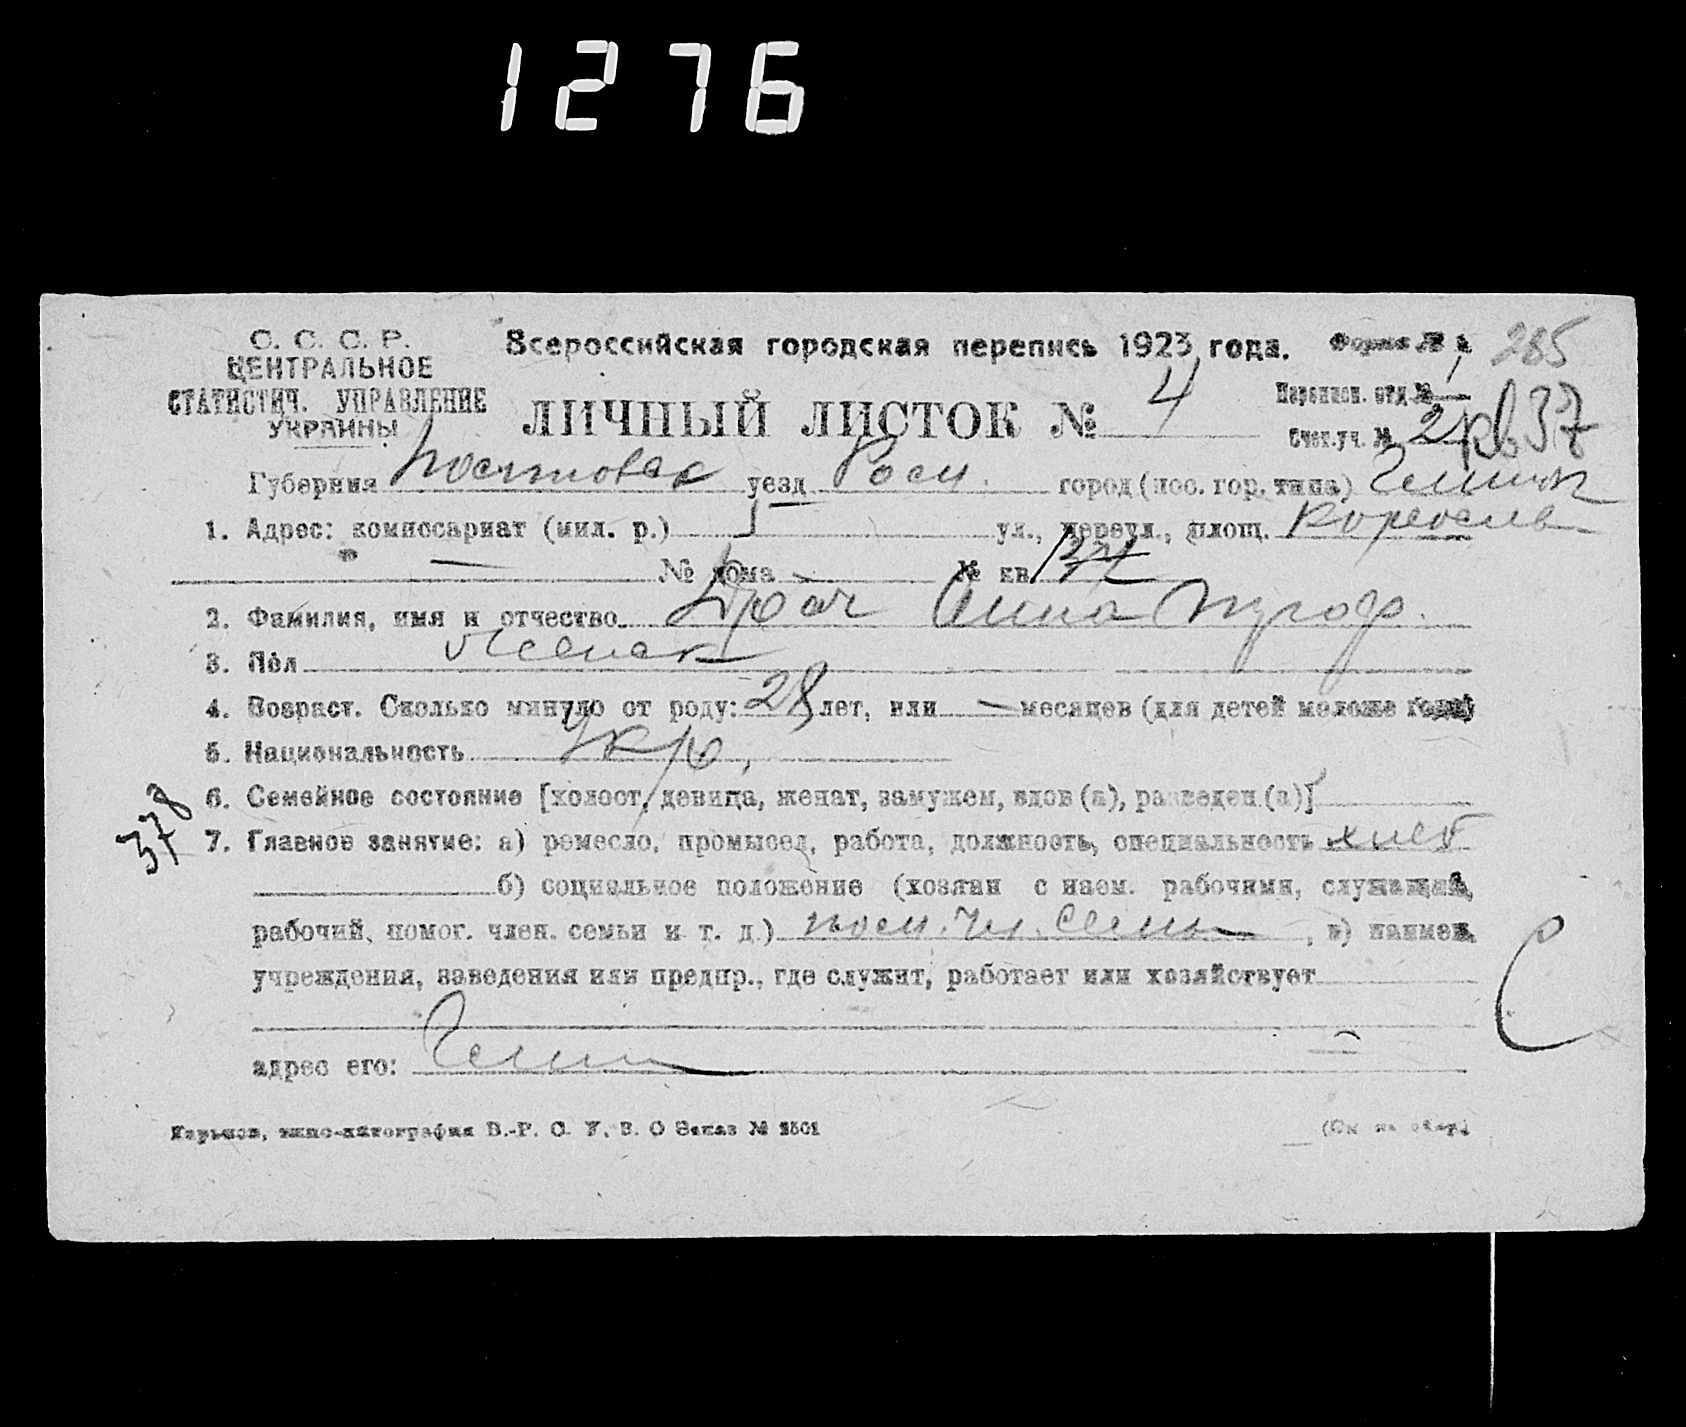 1276
С. С. С. Р.
ЦЕНТРАЛЬНОЕ
СТАТИСТИЧ. УПРАВЛЕНИЕ
УКРАИНЫ
Всероссийская городская перепись 1923 года.
Форма № 1
285
ЛИЧНЫЙ ЛИСТОК № 4
Переписн. отд. № 1
Счет. уч. № 2 кв 37
Губерния уезд город (пос. гор. типа)
1. Адрес: комиссариат (мил. р.) ул., переул., площ.
— № дома № кв. 37
2. Фамилия, имя и отчество Драч Анна
3. Пол Женск
4. Возраст. Сколько минуло от роду: 28 лет, или — месяцев (для детей моложе года)
5. Национальность Укр.
6. Семейное состояние [холост, девица, женат, замужем, вдов (а), разведен (а)]
378
7. Главное занятие: а) ремесло, промысел, работа, должность, специальность хлеб
б) социальное положение (хозяин с наем. рабочими, служащий,
рабочий, помог. член. семьи и т. д.) пом. чл. семьи, в) наимен.
учреждения, заведения или предпр., где служит, работает или хозяйствует
адрес его:
Харьков, типо-литография В.-Р. С. У. В. О Заказ № 2501
(См на обор.)